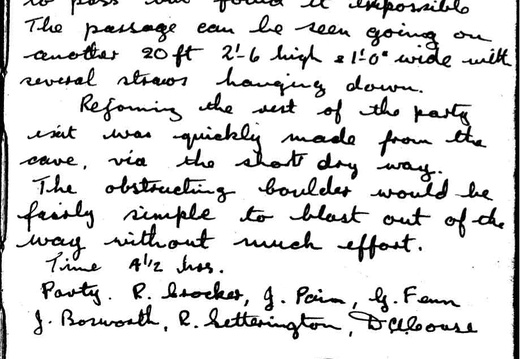 to pass but found it impossible
The passage can be seen going on
another 20ft 2'-6 high & 1'-0" wide with
several straws hanging down.
Rejoining the rest of the party
exit was quickly made from the
cave, via the short dry way.
The obstructing boulder would be
fairly simple to blast out of the
way without much effort.
Time 4½ hrs.
Party. R. Crocker, J. Pain, G. Fenn
J. Bosworth, R. Setterington,